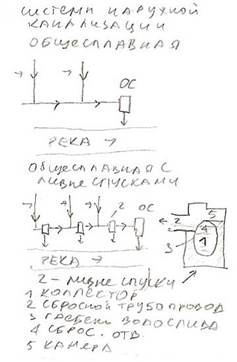 СИСТЕМЫ НАРУЖНОЙ
КАНАЛИЗАЦИИ
ОБЩЕСПЛАВНАЯ
ОС
РЕКА →
ОБЩЕСПЛАВНАЯ С
ЛИВНЕСПУСКАМИ
2 ОС
РЕКА →
5
2
4
3
1
2 - ЛИВНЕСПУСКИ
1 КОЛЛЕКТОР
2 СБРОСНОЙ ТРУБОПРОВОД
3 ГРЕБЕНЬ ВОДОСЛИВА
4 СБРОС. ОТВ.
5 КАМЕРА